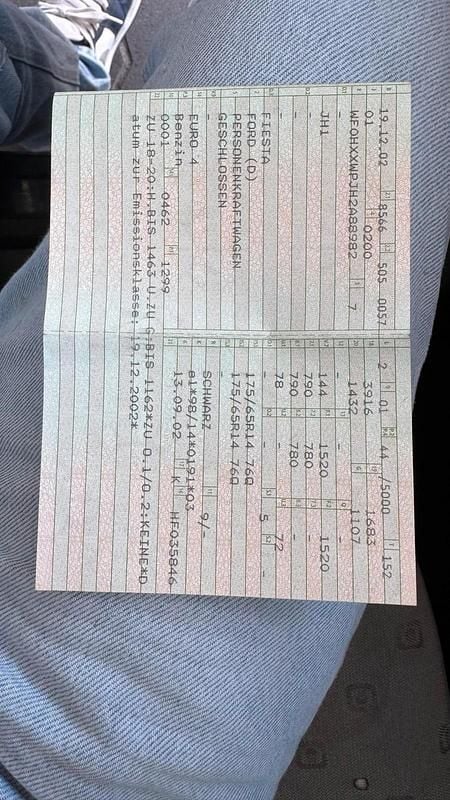 19.12.02 8566 505 0057
01 0200
WF0HXXWPJH2A88982 7
-
JH1
-
-
FIESTA
FORD (D)
PERSONENKRAFTWAGEN
GESCHLOSSEN
-
EURO 4
Benzin
0001 0462 1299
2 01 44 /5000 152
3916 1683
1432 1107
- -
144 1520 1520
790 780 -
790 780 -
78 - 72
- 5 -
175/65R14 76Q
175/65R14 76Q
-
SCHWARZ 9/-
e1*98/14*0191*03
13.09.02 K HF035846
ZU 18-20:H.BIS 1463 U.ZU G:BIS 1162*ZU O.1/O.2:KEINE*D
atum zur Emissionsklasse: 19.12.2002*